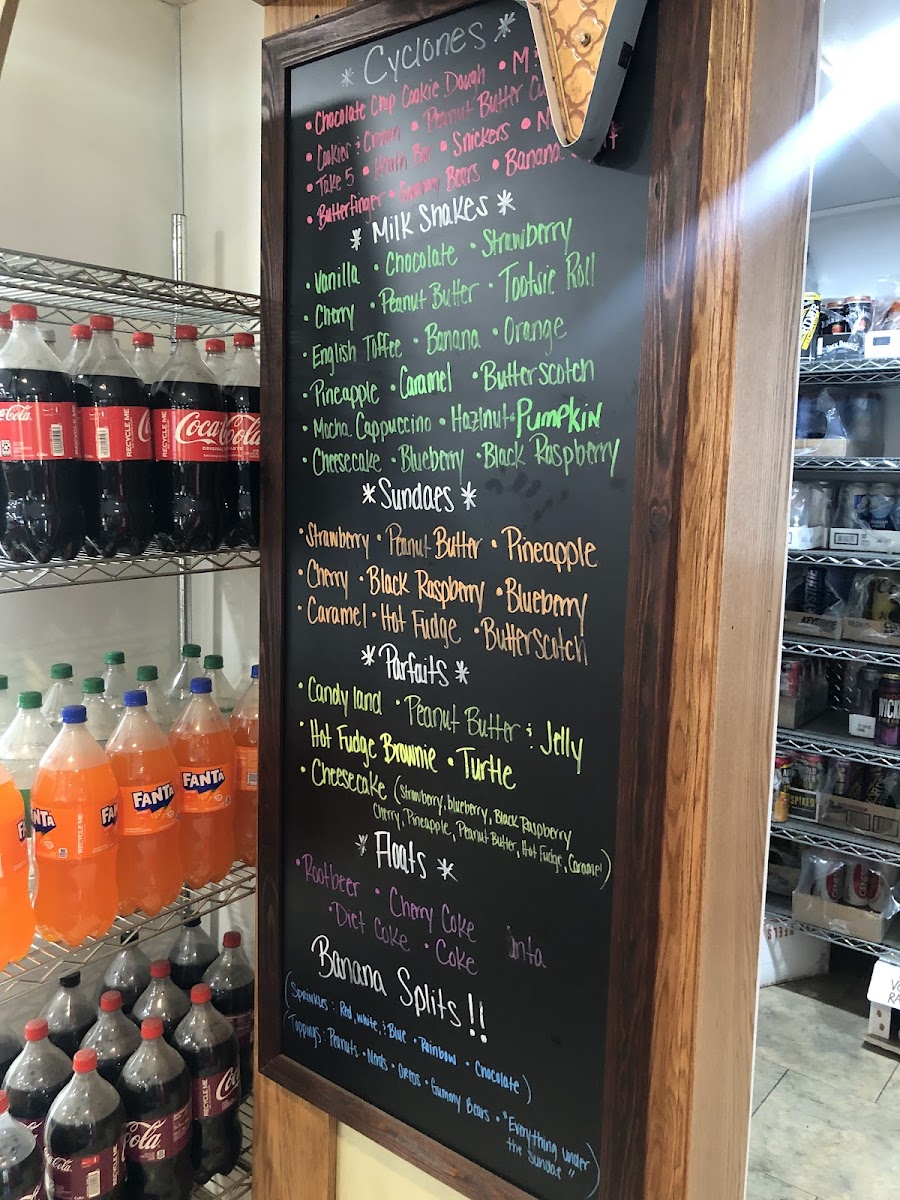 * Cyclones *
• Chocolate Chip Cookie Dough • M
• Cookies & Cream • Peanut Butter
• Take 5 • Heath Bar • Snickers •
• Butterfinger • Gummy Beers • Banana
* Milk Shakes *
• Vanilla • Chocolate • Strawberry
• Cherry • Peanut Butter • Tootsie Roll
• English Toffee • Banana • Orange
• Pineapple • Caramel • Butterscotch
• Mocha Cappuccino • Hazlnut • PUMPKIN
• Cheesecake • Blueberry • Black Raspberry
* Sundaes *
• Strawberry • Peanut Butter • Pineapple
• Cherry • Black Raspberry • Blueberry
• Caramel • Hot Fudge • Butterscotch
* Parfaits *
• Candyland • Peanut Butter & Jelly
• Hot Fudge Brownie • Turtle
• Cheesecake (strawberry, blueberry, Black Raspberry
Cherry, Pineapple, Peanut Butter, Hot Fudge, Caramel)
* Floats *
• Rootbeer • Cherry Coke
• Diet Coke • Coke
Banana Splits!!
(Sprinkles: Red, white, & Blue • Rainbow • Chocolate)
(Toppings: Peanuts • Nerds • Oreos • Gummy Bears • "Everything under
the Sundae")
Coca-Cola
RECYCLE ME
FANTA
FANTA
RECYCLE ME
Cola